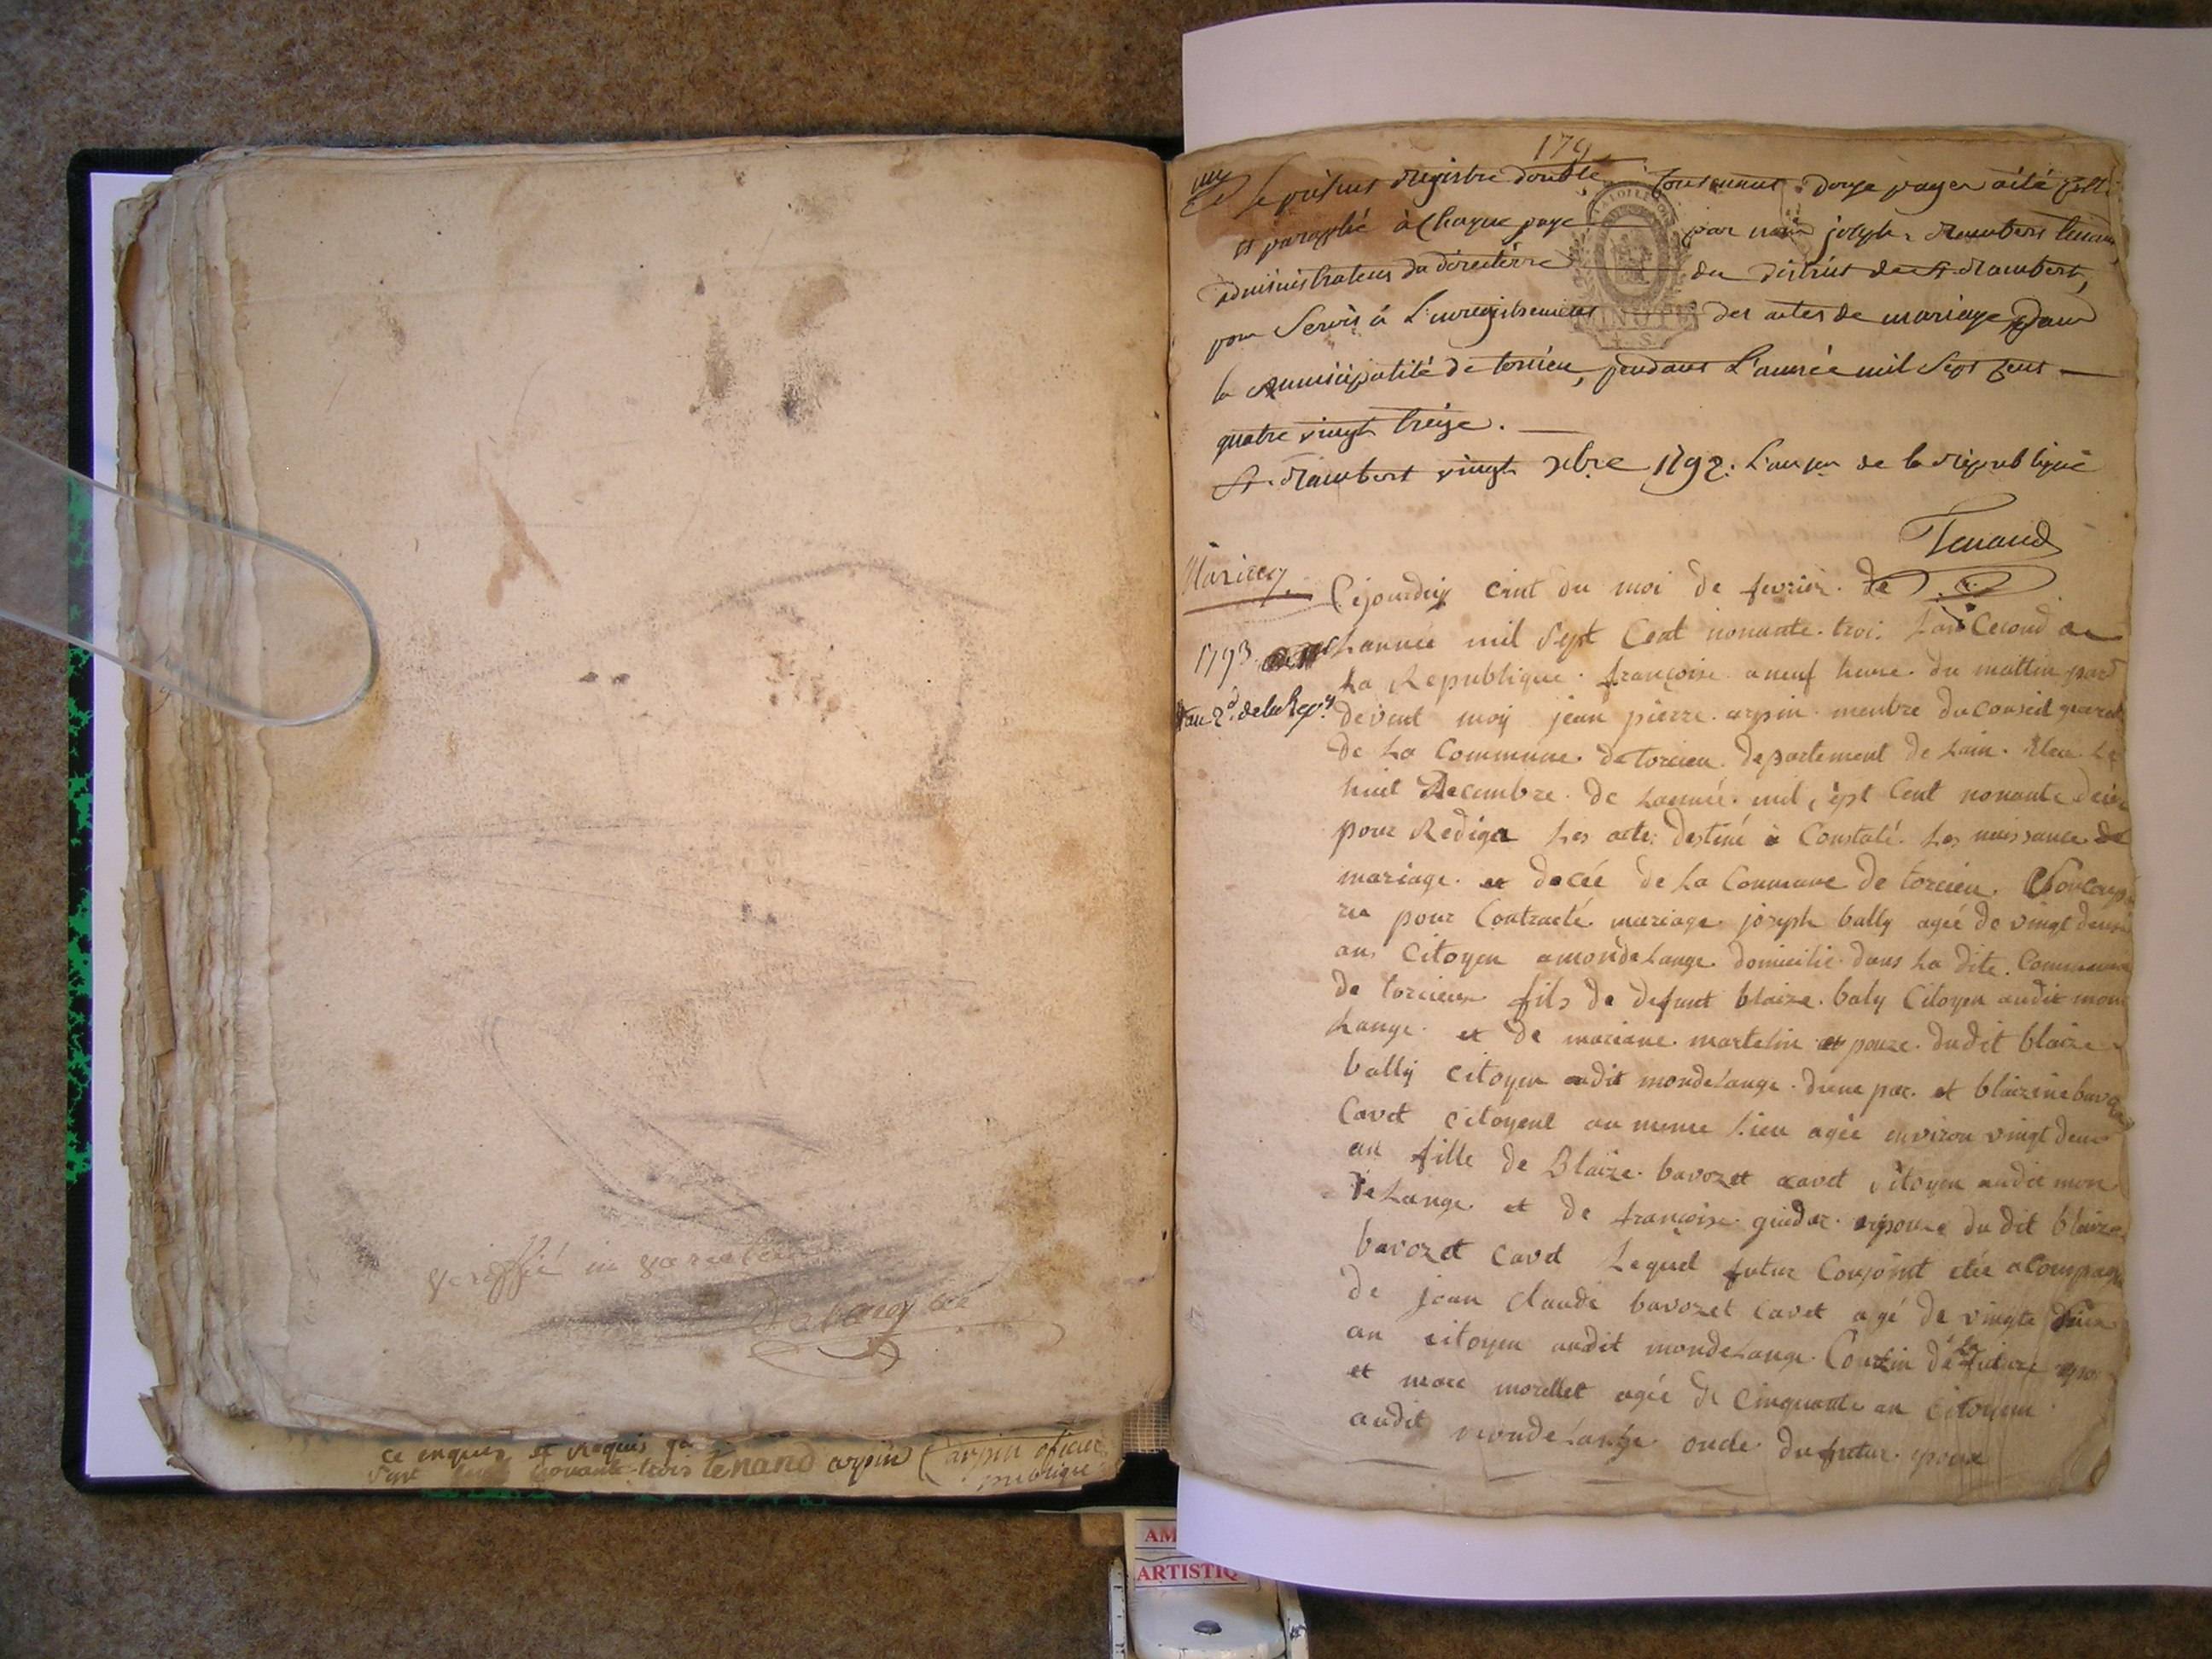 veriffié
ce enquis et Requis ce
nonante trois tenand arpin (arpin oficier
publique
179
Le présent Registre double contenant douze pages a été cotté
et paraphé à chaque page par nous joseph Rambert tenand,
administrateur du directoire du district de St Rambert,
pour servir à l'enregistrement des actes de mariage dans
la municipalité de torcieu, pendant l'année mil sept cent
quatre vingt treize.
St. Rambert vingt Xbre 1792. L'an 1er de la République
Tenand
Mariag
1793
l'an 2d de la Rep
Cejourduy cint du moi de fevrier de
Lannée mil sept Cent nonante troi. Lan Cecond de
La Republique françoise a neuf heure du mattin par
devent moy jean pierre arpin menbre du Conseil general
de La Commune de torcieu departement de Lain Eleu Le
huit Decembre de Lanneé mil sept Cent nonante deux
pour Rediger Les acte destiné a Constaté Les naissance
mariage et décée de La Commune de torcieu.
pour Contracté mariage joseph bally agée de vingt deux
an Citoyen a mondelange domicilié dans La dite Commune
de torcieu fils de defunt blaize baly Citoyen audit mon
Lange et de mariane martelin epouze dudit blaize
bally citoyen audit mondelange dune par et blaizine bavozet
Cavet citoyent au meme Lieu agée environ vingt deux
an fille de Blaize bavozet cavet citoyen audit mon
deLange et de françoise epouze du dit blaize
bavozet Cavet Lequel futur Conjoint eté acompagné
de jean claude bavozet cavet agé de vingt
an citoyen audit mondelange Couzin de la future
et marc morellet agée de Cinquante an citoyen
audit mondelange oncle du futur epoux